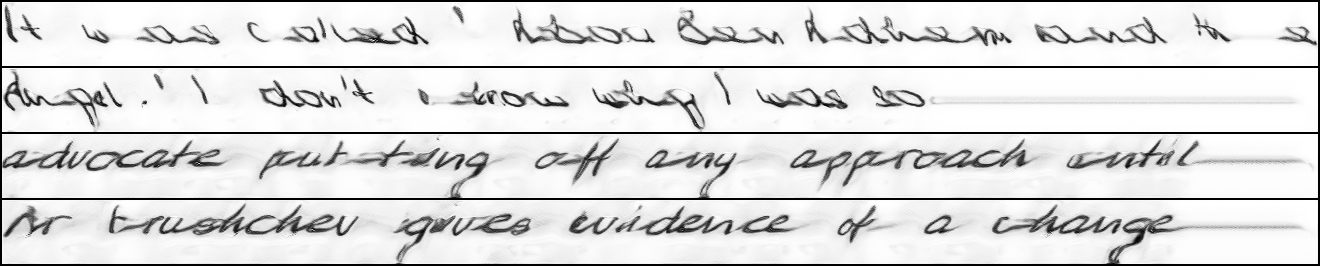 It was called ' Abou Ben Adhem and the
Angel . ' I don't know why I was so
advocate putting off any approach until
Mr Krushchev gives evidence of a change